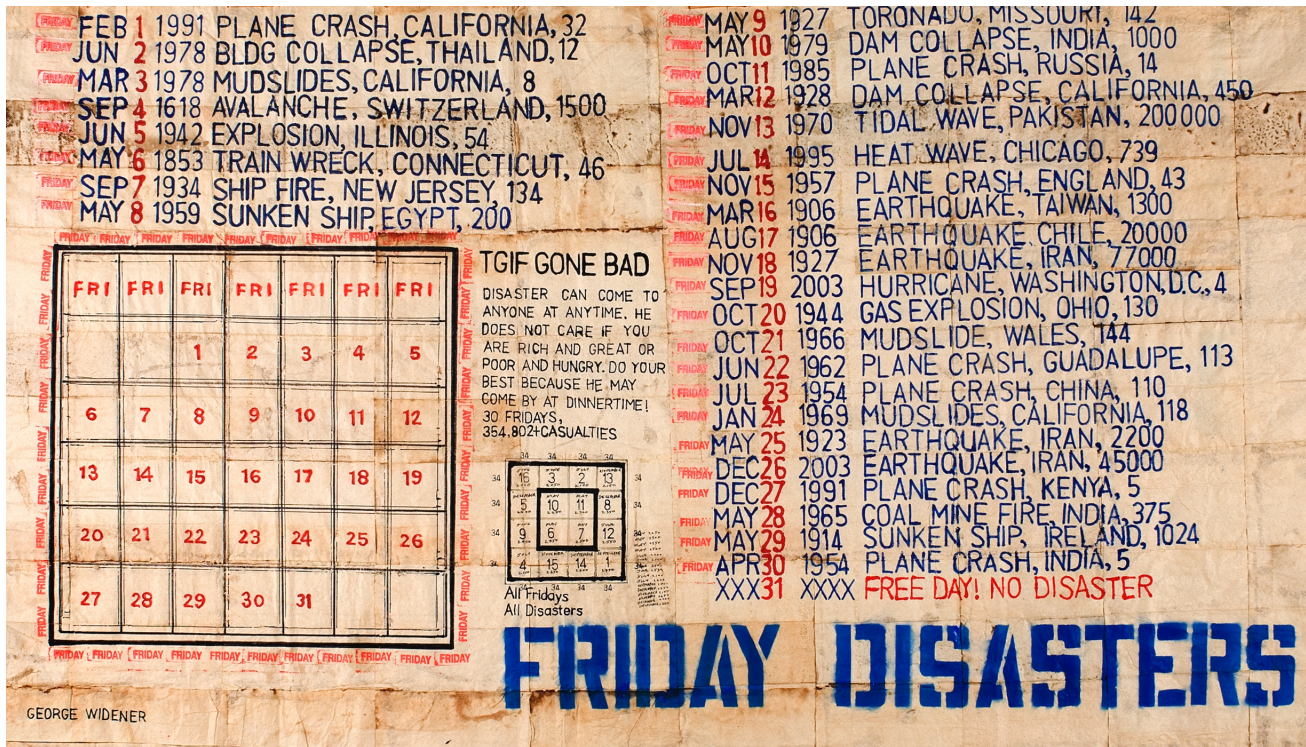 FRIDAY FEB 1 1991 PLANE CRASH, CALIFORNIA, 32
FRIDAY JUN 2 1978 BLDG COLLAPSE, THAILAND, 12
FRIDAY MAR 3 1978 MUDSLIDES, CALIFORNIA, 8
FRIDAY SEP 4 1618 AVALANCHE, SWITZERLAND, 1500
FRIDAY JUN 5 1942 EXPLOSION, ILLINOIS, 54
FRIDAY MAY 6 1853 TRAIN WRECK, CONNECTICUT, 46
FRIDAY SEP 7 1934 SHIP FIRE, NEW JERSEY, 134
FRIDAY MAY 8 1959 SUNKEN SHIP, EGYPT, 200
FRIDAY FRIDAY FRIDAY FRIDAY FRIDAY FRIDAY FRIDAY FRIDAY FRIDAY FRIDAY
FRI FRI FRI FRI FRI FRI FRI
1 2 3 4 5
6 7 8 9 10 11 12
13 14 15 16 17 18 19
20 21 22 23 24 25 26
27 28 29 30 31
FRIDAY FRIDAY FRIDAY FRIDAY FRIDAY FRIDAY FRIDAY FRIDAY FRIDAY FRIDAY
GEORGE WIDENER
TGIF GONE BAD
DISASTER CAN COME TO
ANYONE AT ANYTIME. HE
DOES NOT CARE IF YOU
ARE RICH AND GREAT OR
POOR AND HUNGRY. DO YOUR
BEST BECAUSE HE MAY
COME BY AT DINNERTIME!
30 FRIDAYS,
354.802+CASUALTIES
34 34 34 34
34 16 3 2 13
34 5 10 11 8
34 9 6 7 12 34
34 4 15 14 1
34 34
All Fridays
All Disasters
FRIDAY MAY 9 1927 TORONADO, MISSOURI, 142
FRIDAY MAY 10 1979 DAM COLLAPSE, INDIA, 1000
FRIDAY OCT 11 1985 PLANE CRASH, RUSSIA, 14
FRIDAY MAR 12 1928 DAM COLLAPSE, CALIFORNIA, 450
FRIDAY NOV 13 1970 TIDAL WAVE, PAKISTAN, 200000
FRIDAY JUL 14 1995 HEAT WAVE, CHICAGO, 739
FRIDAY NOV 15 1957 PLANE CRASH, ENGLAND, 43
FRIDAY MAR 16 1906 EARTHQUAKE, TAIWAN, 1300
FRIDAY AUG 17 1906 EARTHQUAKE, CHILE, 20000
FRIDAY NOV 18 1927 EARTHQUAKE, IRAN, 77000
FRIDAY SEP 19 2003 HURRICANE, WASHINGTON, D.C., 4
FRIDAY OCT 20 1944 GAS EXPLOSION, OHIO, 130
FRIDAY OCT 21 1966 MUDSLIDE, WALES, 144
FRIDAY JUN 22 1962 PLANE CRASH, GUADALUPE, 113
FRIDAY JUL 23 1954 PLANE CRASH, CHINA, 110
FRIDAY JAN 24 1969 MUDSLIDES, CALIFORNIA, 118
FRIDAY MAY 25 1923 EARTHQUAKE, IRAN, 2200
FRIDAY DEC 26 2003 EARTHQUAKE, IRAN, 45000
FRIDAY DEC 27 1991 PLANE CRASH, KENYA, 5
FRIDAY MAY 28 1965 COAL MINE FIRE, INDIA, 375
FRIDAY MAY 29 1914 SUNKEN SHIP, IRELAND, 1024
FRIDAY APR 30 1954 PLANE CRASH, INDIA, 5
XXX 31 XXXX FREE DAY! NO DISASTER
FRIDAY DISASTERS